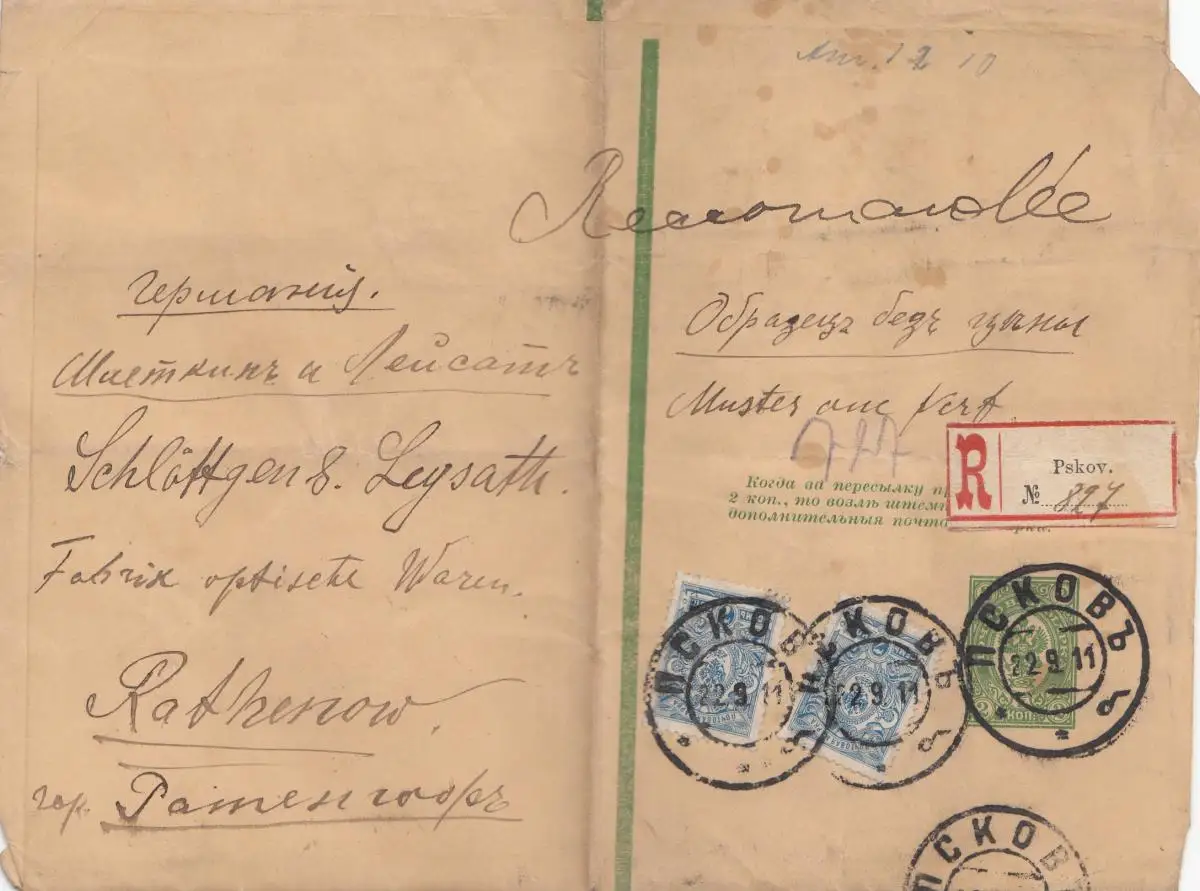 Recomandée
Германiя.
Шлеткинъ и Лейсатъ
Schlöttgen & Leysath.
Fabrik optische Waren.
Rathenow.
гор.
Образецъ безъ цѣны
Muster one Vert
R
Pskov.
№ 827
Когда за пересылку
2 коп., то возлѣ
дополнительныя
ПСКОВЪ
22.9.11
ПСКОВЪ
22.9.11
ПСКОВЪ
22.9.11
КОП.
ПСКОВЪ